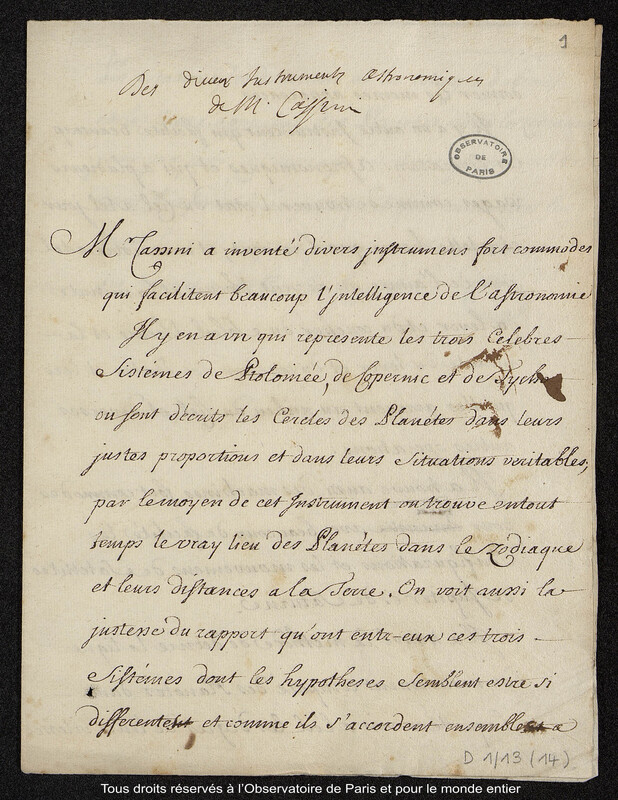 1
Des divers Instruments astronomiques
de M. Cassini
OBSERVATOIRE
DE
PARIS
Mr Cassini a inventé divers jnstrumens fort commodes
qui facilitent beaucoup l'jntelligence de l'astronomie
Jl y en a vn qui represente les trois Celebres
Sistémes de Ptolomée, de Copernic et de Tycho
ou sont décrits les Cercles des Planétes dans leurs
justes proportions et dans leurs situations veritables,
par le moyen de cet Jnstrument on trouve en tout
temps le vray lieu des Planétes dans le Zodiaque
et leurs distances a la Terre. On voit aussi la
justesse du rapport qu'ont entr-eux ces trois
Sistémes dont les hypotheses semblent estre si
differentes et comme ils s'accordent ensemble a
D 1/13 (14)
Tous droits réservés à l'Observatoire de Paris et pour le monde entier